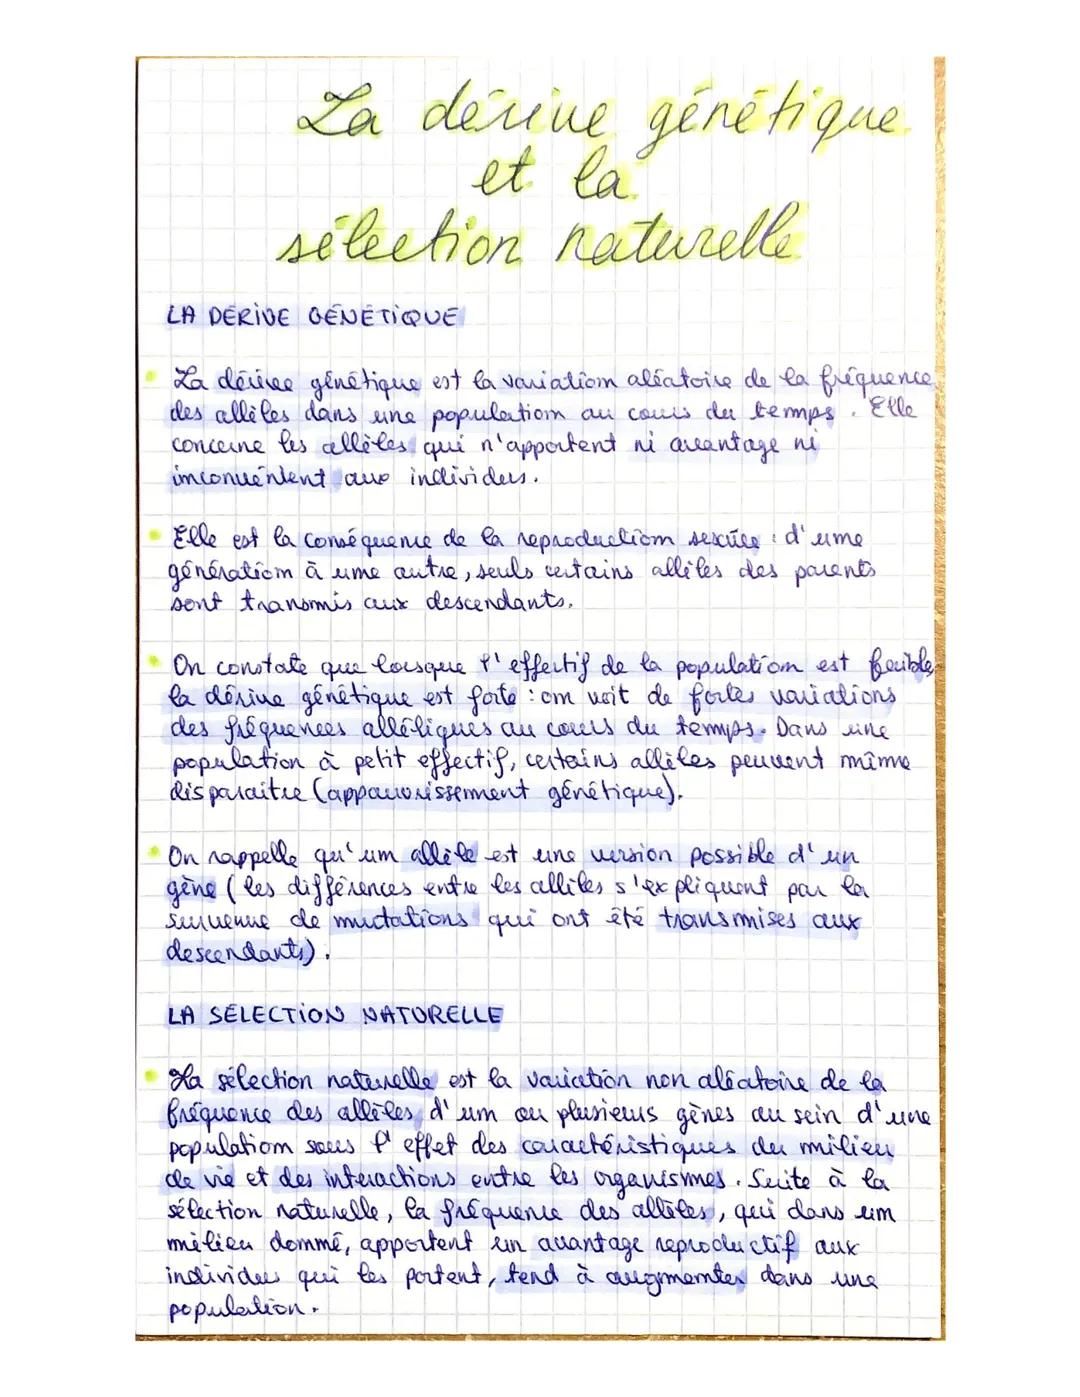 La dérive génétique
et la
sélection naturelle
LA DÉRIVE GÉNÉTIQUE
La dérive génétique est la variation aléatoire de la fréquence
des allèles dans une population au cours du temps. Elle
concerne les allèles qui n'apportent ni avantage ni
inconvénient aux individus.
Elle est la conséquence de la reproduction sexuée : d'une
génération à une autre, seuls certains allèles des parents
sont transmis aux descendants.
On constate que lorsque l'effectif de la population est faible,
la dérive génétique est forte : on voit de fortes variations
des fréquences alléliques au cours du temps. Dans une
population à petit effectif, certains allèles peuvent même
disparaitre (appauvrissement génétique).
On rappelle qu'un allèle est une version possible d'un
gène (les différences entre les allèles s'expliquent par la
survenue de mutations qui ont été transmises aux
descendants).
LA SÉLECTION NATURELLE
La sélection naturelle est la variation non aléatoire de la
fréquence des allèles d'un ou plusieurs gènes au sein d'une
population sous l'effet des caractéristiques du milieu
de vie et des interactions entre les organismes. Suite à la
sélection naturelle, la fréquence des allèles, qui dans un
milieu donné, apportent un avantage reproductif aux
individus qui les portent, tend à augmenter dans une
population.